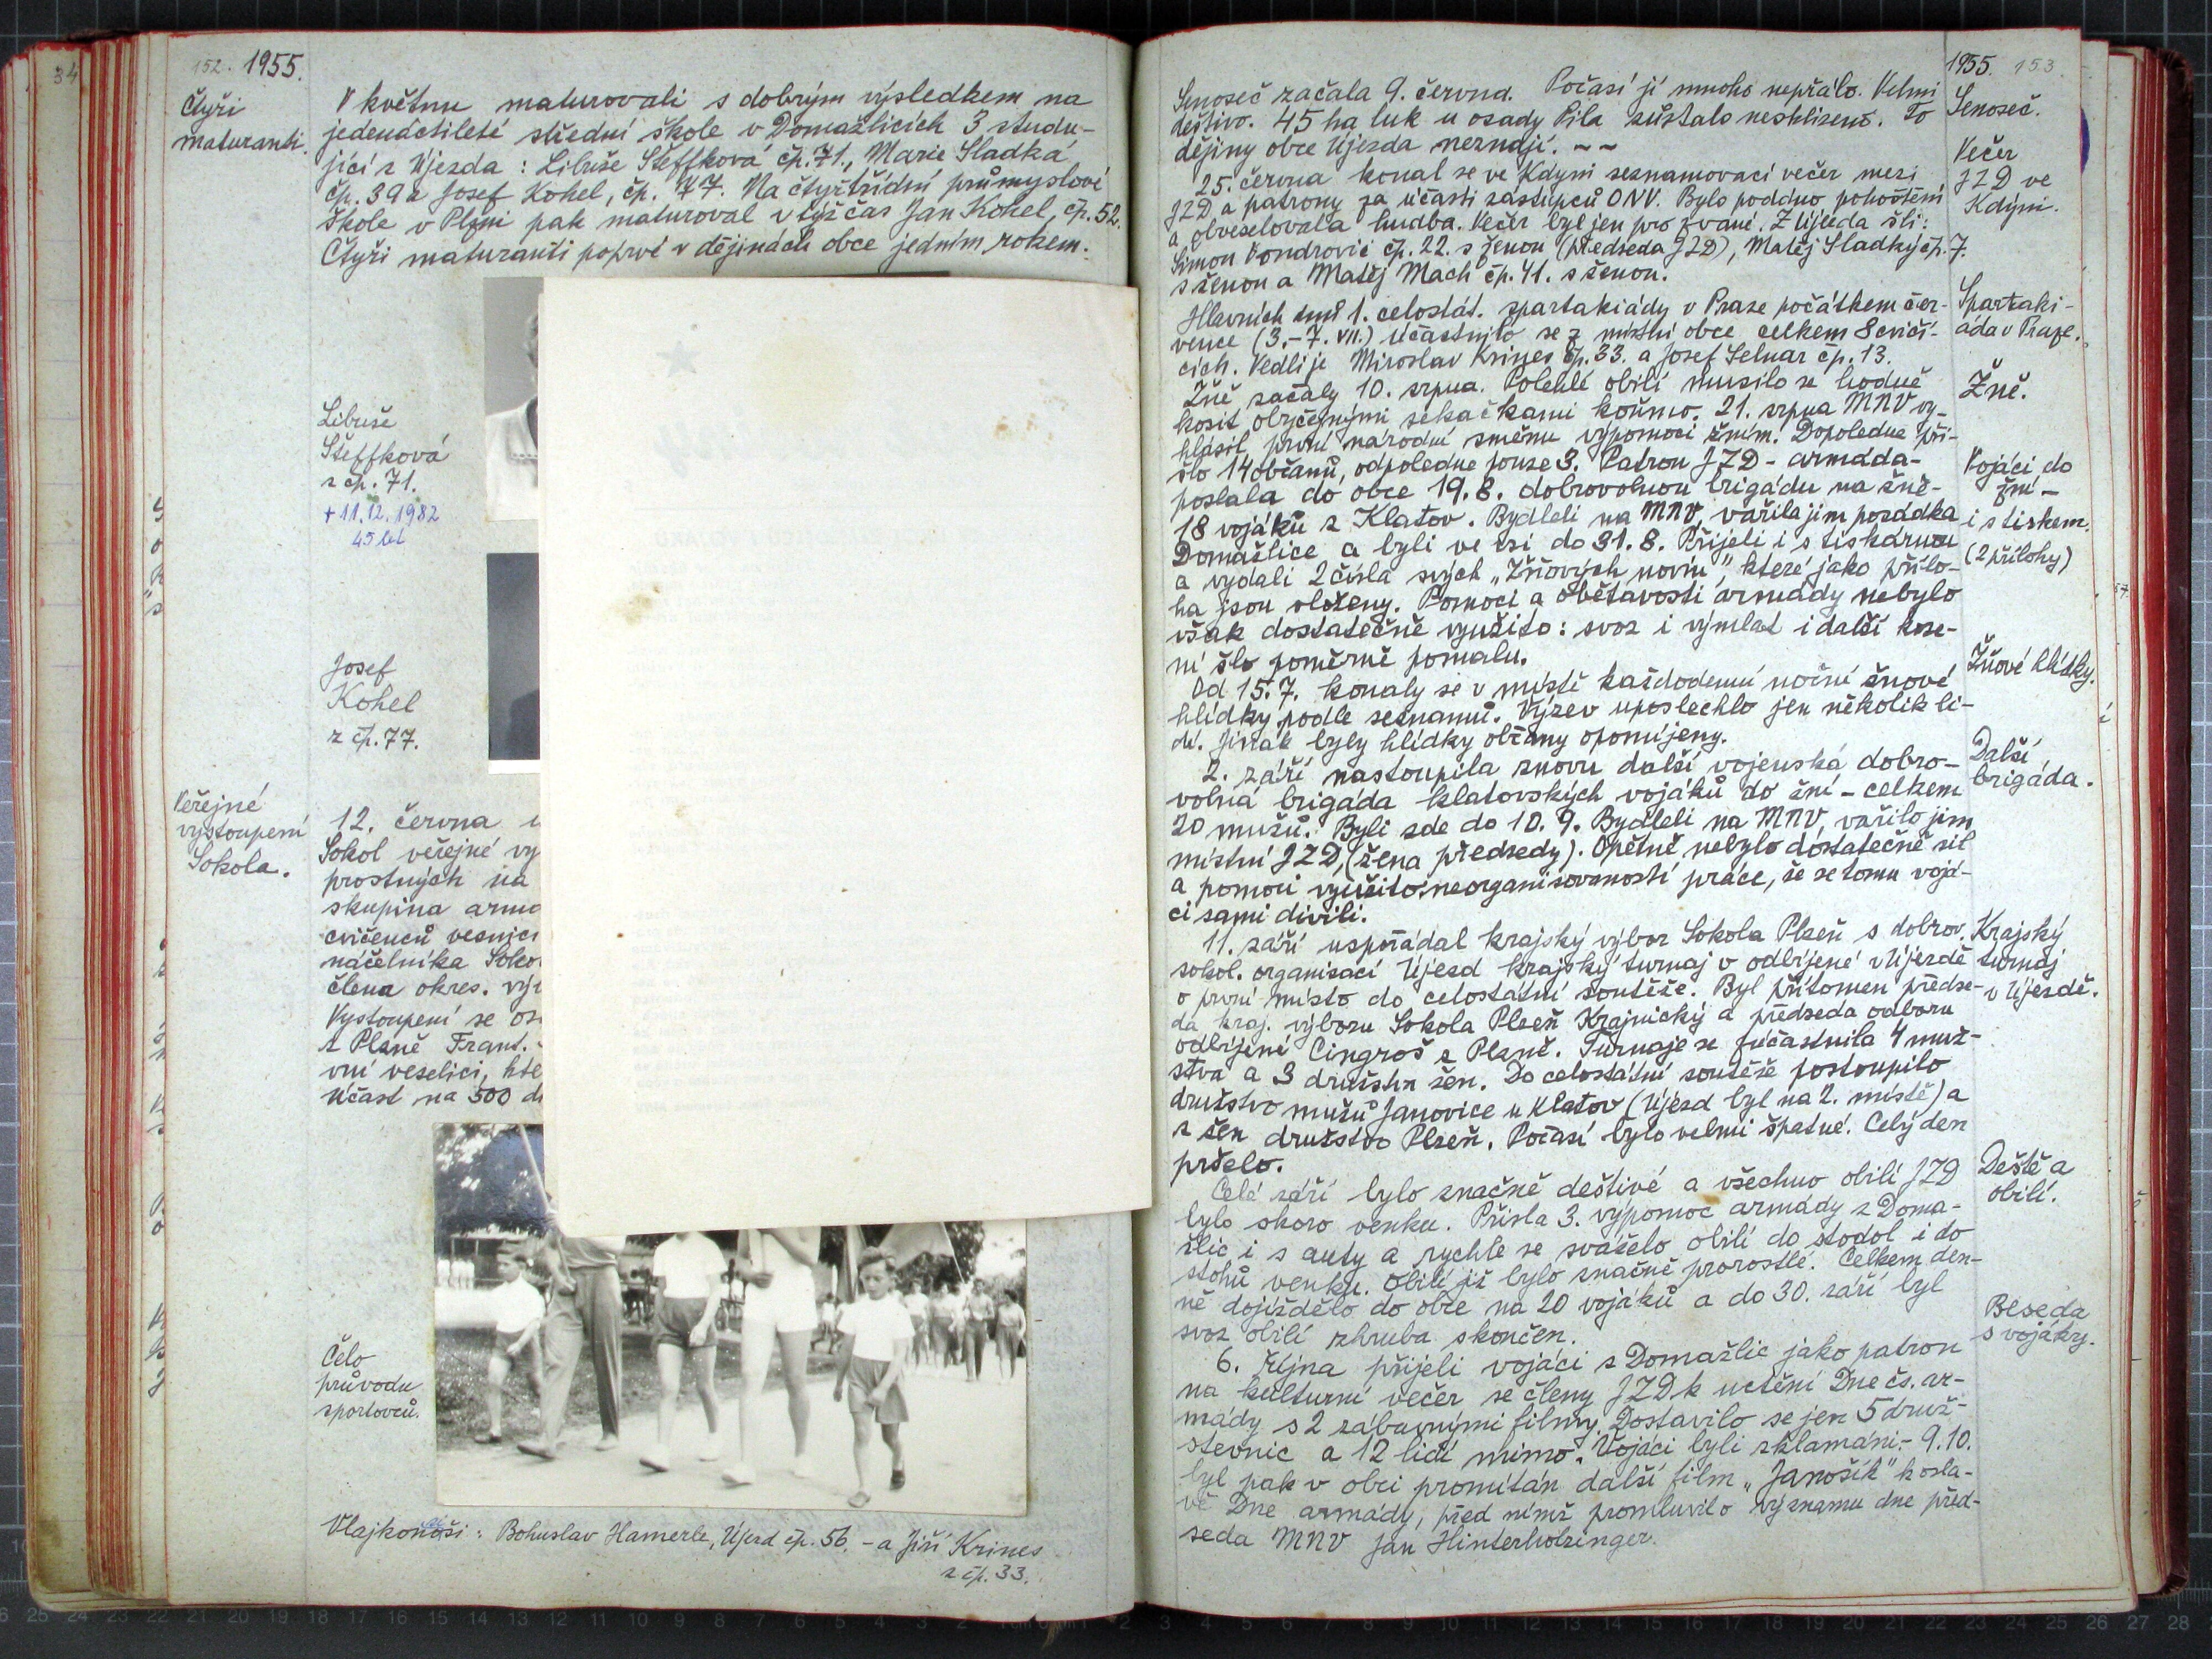 152. 1955.
Čtyři
maturanti.
V květnu maturovali s dobrým výsledkem na
jedenáctileté střední škole v Domažlicích 3 studu-
jící z Újezda: Libuše Šteffková čp. 71., Marie Sladká
čp. 39 a Josef Kohel, čp. 77. Na čtyřtřídní průmyslové
škole v Plzni pak maturoval v týž čas Jan Kohel, čp. 52.
Čtyři maturanti poprvé v dějinách obce jedním rokem.
Libuše
Šteffková
z čp. 71.
+ 11.12.1982
45 let
Josef
Kohel
z čp. 77.
Veřejné
vystoupení
Sokola.
12. června u
Sokol veřejné vy
prostných na
skupina armá
cvičenců vesnic
náčelníka Soko
člena okres. vý
Vystoupení se os
z Plzně Frant.
vní veselici, kte
Účast na 500 d
Čelo
průvodu
sportovců.
Vlajkonoši: Bohuslav Hamerle, Újezd čp. 56. - a Jiří Krines
z čp. 33.
1955. 153.
Senoseč začala 9. června. Počasí jí mnoho nepřálo. Velmi
deštivo. 45 ha luk u osady Pila zůstalo nesklizeno. To
dějiny obce Újezda neznají. - -
Senoseč.
25. června konal se ve Kdyni seznamovací večer mezi
JZD a patrony za účasti zástupců ONV. Bylo podáno pohoštění
a obveselovala hudba. Večer byl jen pro zvané. Z Újezda šli:
Šimon Vondrovic čp. 22. s ženou (předseda JZD), Matěj Sladký čp. 7.
s ženou a Matěj Mach čp. 41. s ženou.
Večer
JZD ve
Kdyni.
Hlavních dnů 1. celostát. spartakiády v Praze počátkem čer-
vence (3.-7. VII.) účastnilo se z místní obce celkem 8 cvičí-
cích. Vedli je Miroslav Krines čp. 33. a Josef Selnar čp. 13.
Spartaki-
áda v Praze.
Žně začaly 10. srpna. Polehlé obilí musilo se hodně
kosit obyčejnými sekačkami koňmo. 21. srpna MNV vy-
hlásil první národní směnu výpomoci žním. Dopoledne při-
šlo 14 občanů, odpoledne pouze 3. Patron JZD - armáda -
poslala do obce 19.8. dobrovolnou brigádu na žně -
18 vojáků z Klatov. Bydleli na MNV, vařila jim posádka
Domažlice a byli ve vsi do 31.8. Přijeli i s tiskárnou
a vydali 2 čísla svých „Žňových novin", které jako přílo-
ha jsou vloženy. Pomoci a obětavosti armády nebylo
však dostatečně využito: svoz i výmlat i další kose-
ní šlo poměrně pomalu.
Žně.
Vojáci do
žní -
i s tiskem.
(2 přílohy)
Od 15.7. konaly se v místě každodenní noční žňové
hlídky podle seznamů. Výzev uposlechlo jen několik li-
dí. Jinak byly hlídky občany opomíjeny.
Žňové hlídky.
2. září nastoupila znovu další vojenská dobro-
volná brigáda klatovských vojáků do žní - celkem
20 mužů. Byli zde do 10.9. Bydleli na MNV, vařilo jim
místní JZD, (žena předsedy). Opětně nebylo dostatečně sil
a pomoci využito: neorganisovaností práce, že se tomu vojá-
ci sami divili.
Další
brigáda.
11. září uspořádal krajský výbor Sokola Plzeň s dobrov.
sokol. organisací Újezd krajský turnaj v odbíjené v Újezdě
o první místo do celostátní soutěže. Byl přítomen předse-
da kraj. výboru Sokola Plzeň Krajnický a předseda odboru
odbíjené Cingroš z Plzně. Turnaje se zúčastnila 4 muž-
stva a 3 družstva žen. Do celostátní soutěže postoupilo
družstvo mužů Janovice u Klatov (Újezd byl na 2. místě) a
z žen družstvo Plzeň. Počasí bylo velmi špatné. Celý den
pršelo.
Krajský
turnaj
v Újezdě.
Celé září bylo značně deštivé a všechno obilí JZD
bylo skoro venku. Přišla 3. výpomoc armády z Doma-
žlic i s auty a rychle se sváželo obilí do stodol i do
stohů venku. Obilí již bylo značně prorostlé. Celkem den-
ně dojíždělo do obce na 20 vojáků a do 30. září byl
svoz obilí zhruba skončen.
Deště a
obilí.
6. října přijeli vojáci z Domažlic jako patron
na kulturní večer se členy JZD k uctění Dne čs. ar-
mády s 2 zábavnými filmy. Dostavilo se jen 5 druž-
stevnic a 12 lidí mimo. Vojáci byli zklamáni. - 9.10.
byl pak v obci promítán další film „Janošík" k osla-
vě Dne armády, před nímž promluvil o významu dne před-
seda MNV Jan Hinterholzinger.
Beseda
s vojáky.